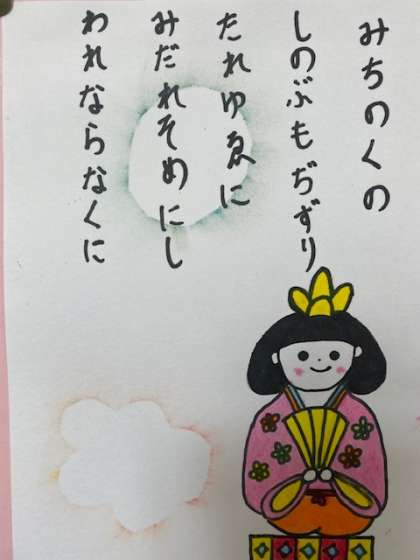 みちのくの
しのぶもぢずり
たれゆゑに
みだれそめにし
われならなくに